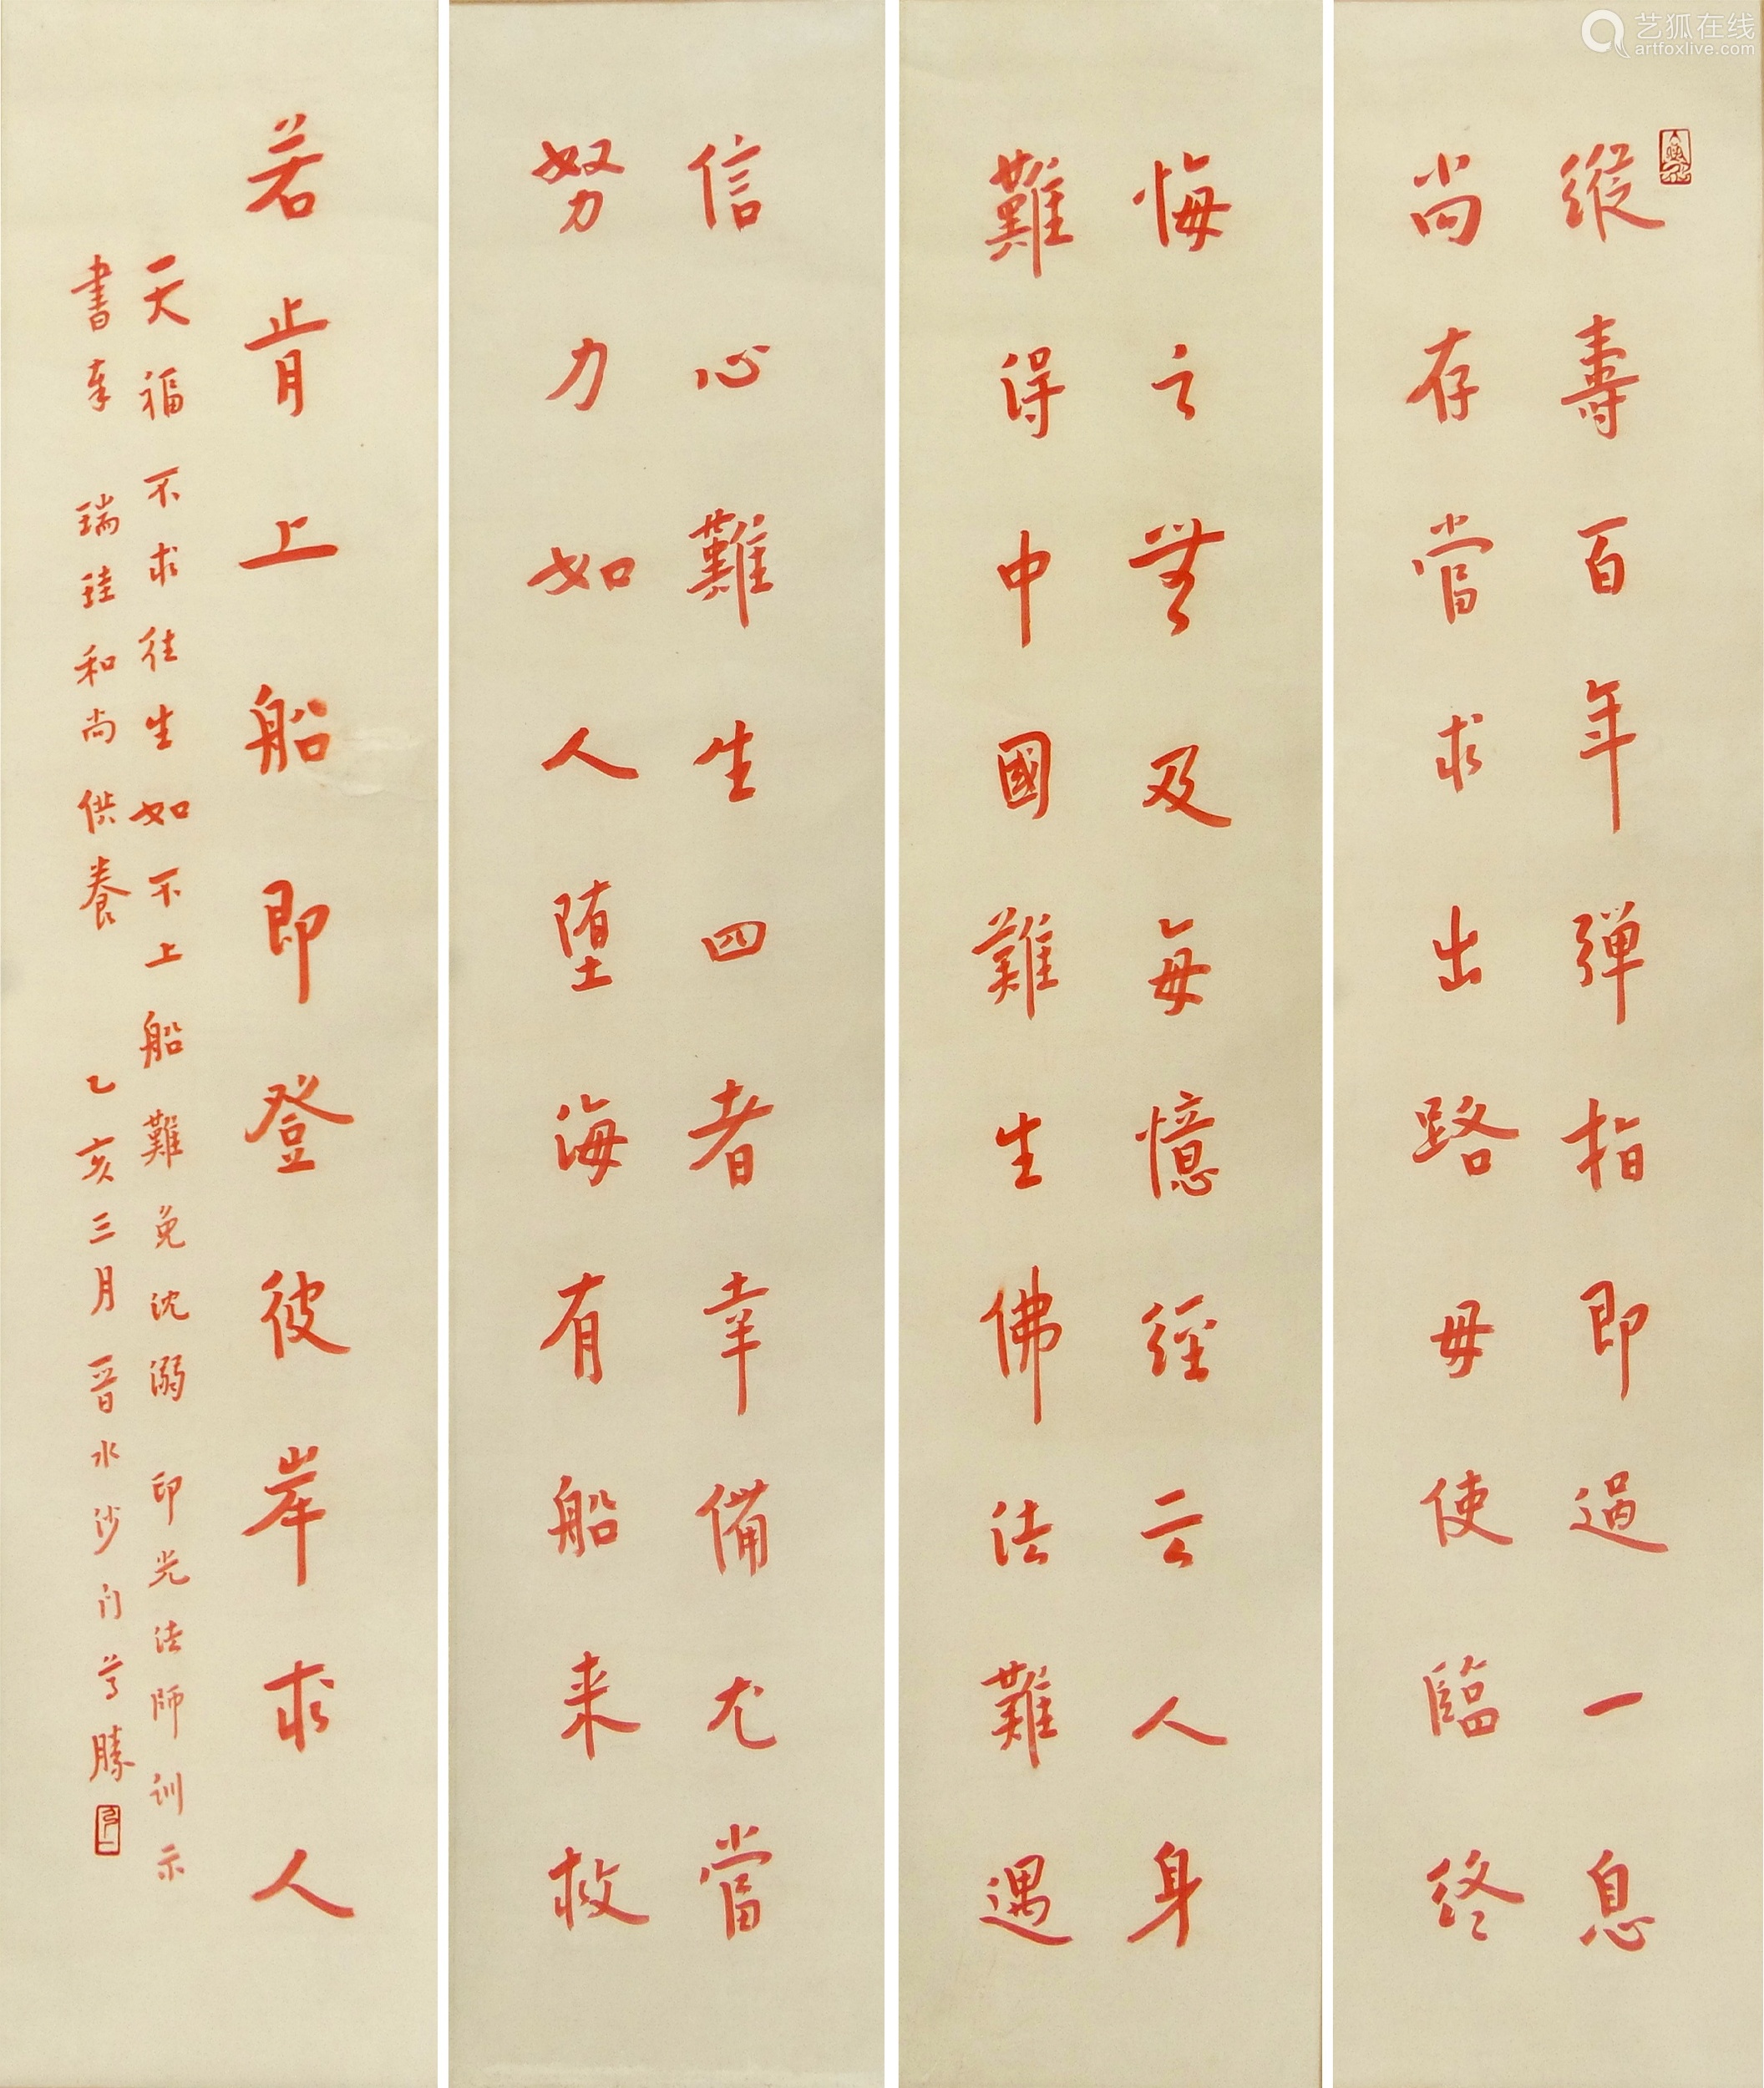 縱壽百年彈指即過一息
尚存當求出路毋使臨終
悔之無及每憶經云人身
難得中國難生佛法難遇
信心難生四者幸備尤當
努力如人墮海有船來救
若肯上船即登彼岸求人
天福不求往生如不上船難免沈溺 印光法師訓示
書奉 瑞珪和尚供養 乙亥三月晉水沙门尊勝
艺狐在线
artfoxlive.com